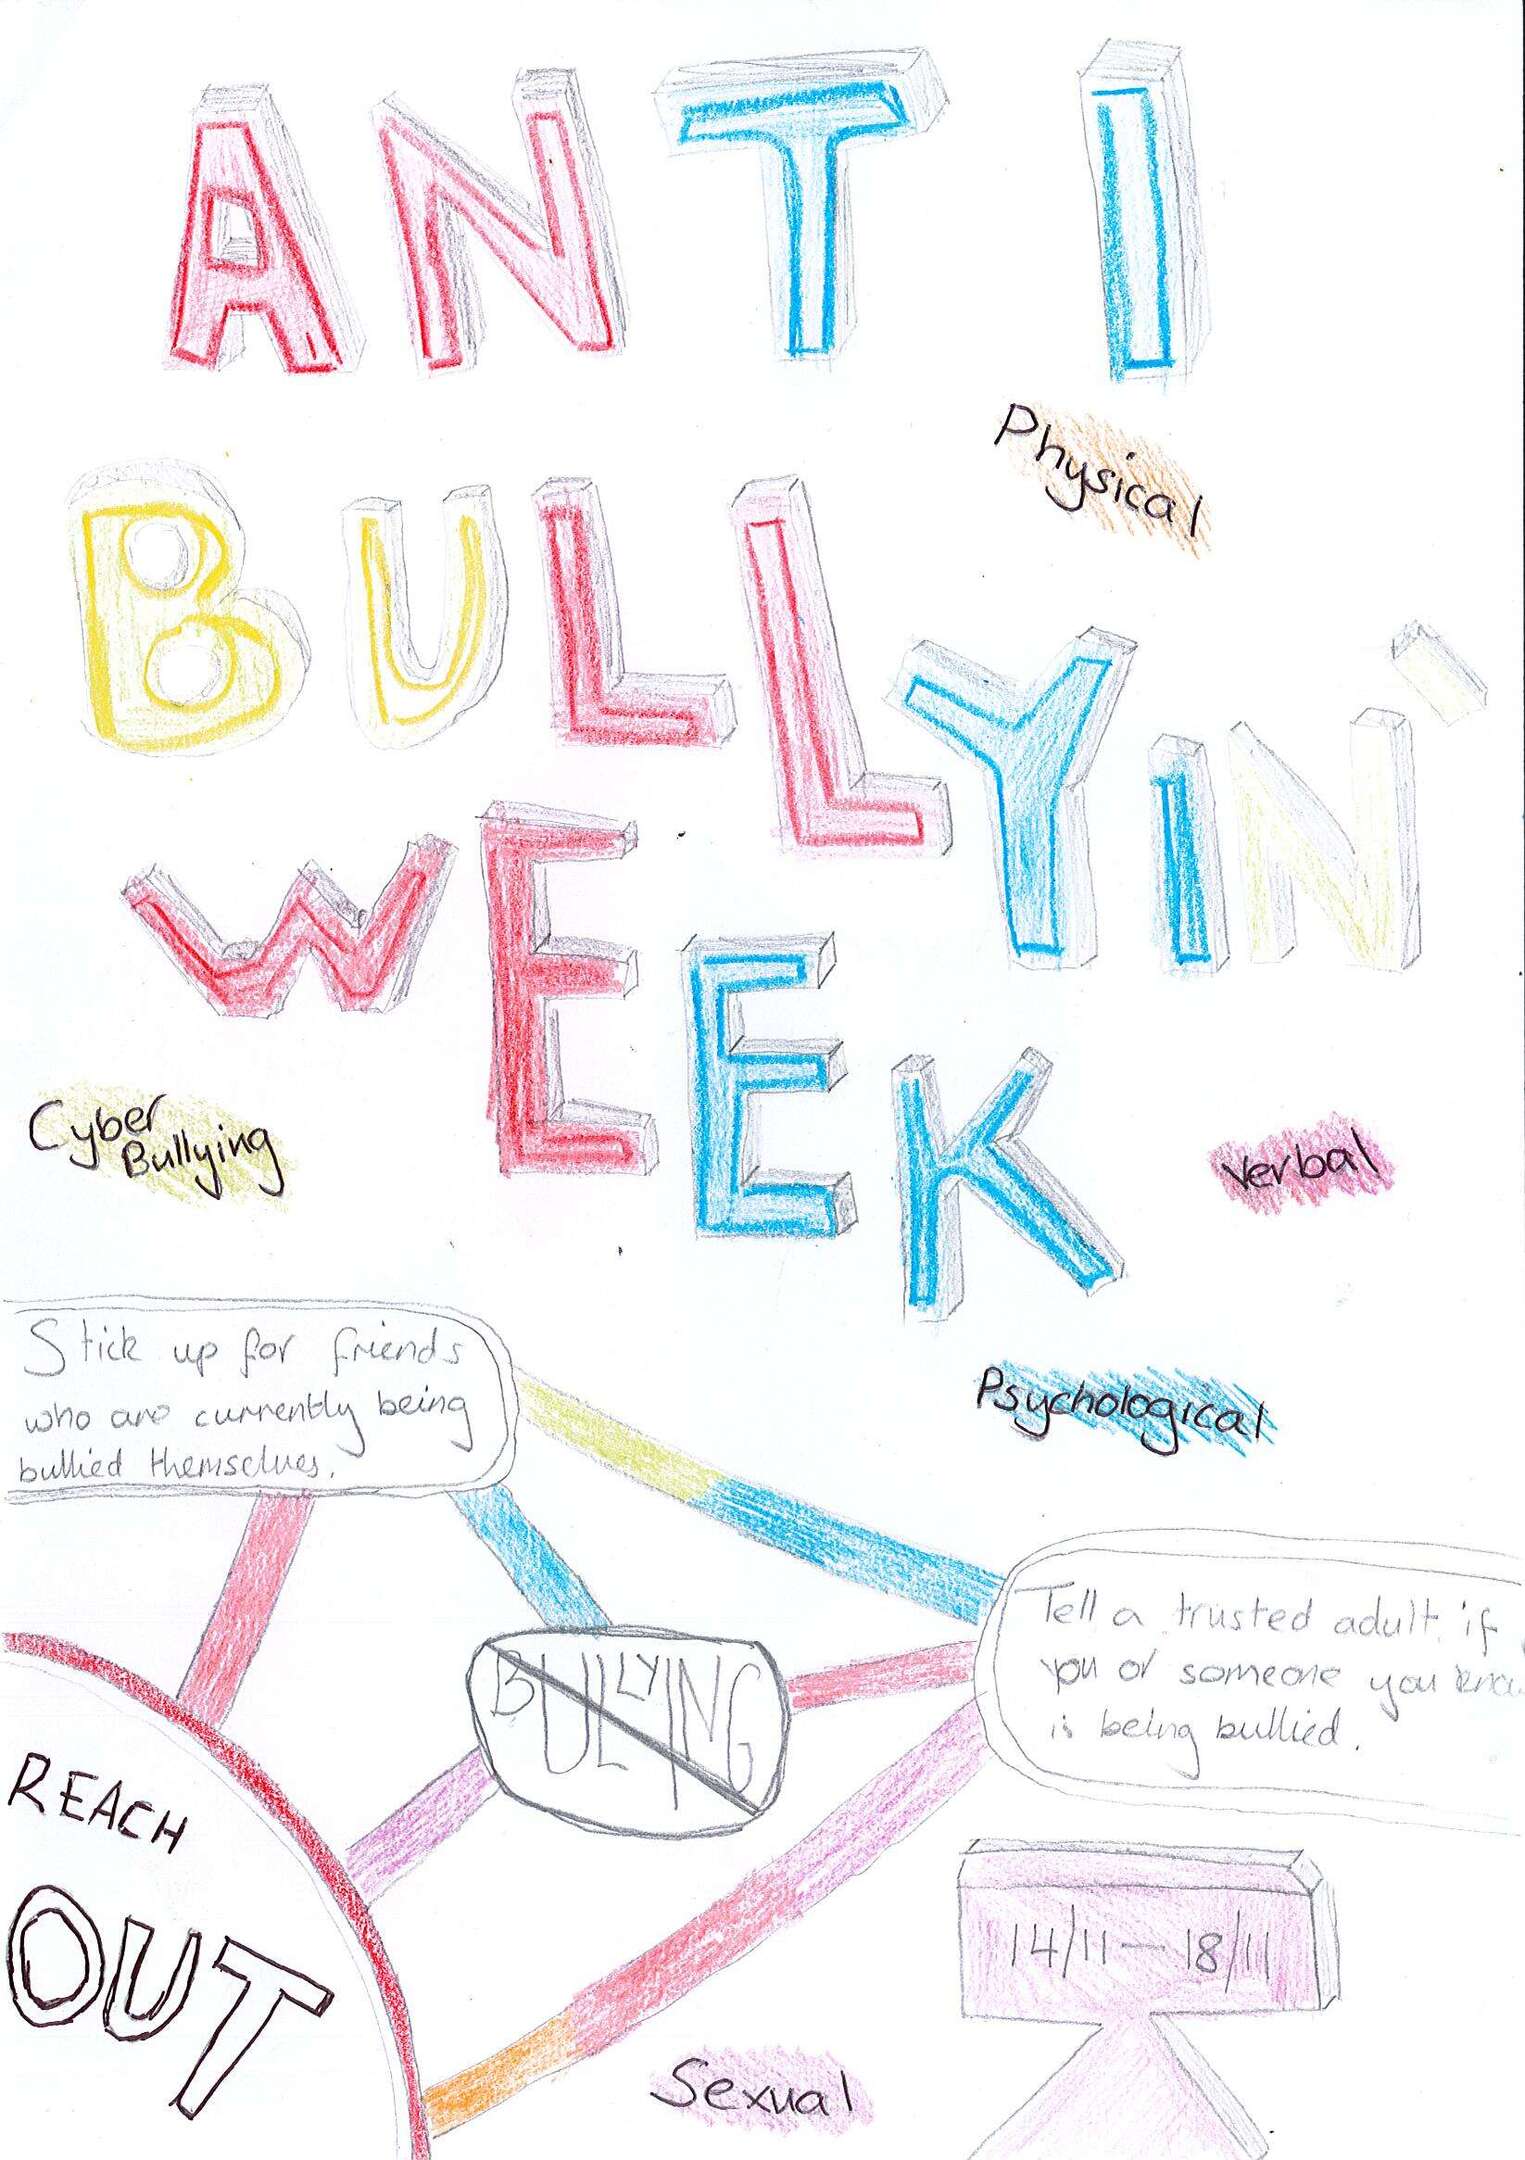 ANTI
Physical
BULLYIN'
WEEK
Cyber
Bullying
Verbal
Psychological
Stick up for friends
who are currently being
bullied themselves.
Tell a trusted adult if
you or someone you know
is being bullied.
BULLYING
REACH
OUT
14/11 — 18/11
Sexual